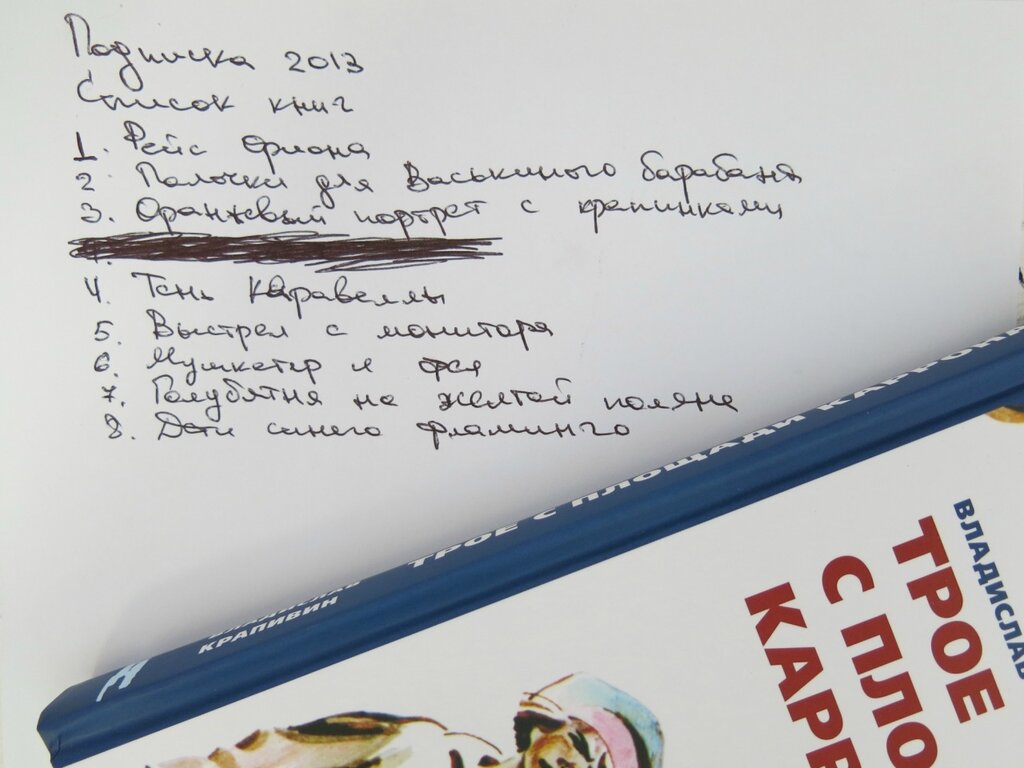 Подписка 2013
Список книг
1. Рейс Ориона
2. Палочки для Васькиного барабана
3. Оранжевый портрет с крапинками
4. Тень Каравеллы
5. Выстрел с монитора
6. Мушкетер и фея
7. Голубятня на желтой поляне
8. Дети синего фламинго
КРАПИВИН ТРОЕ С ПЛОЩАДИ КАРРОНА
ВЛАДИСЛАВ
ТРОЕ
С ПЛО
КАРР